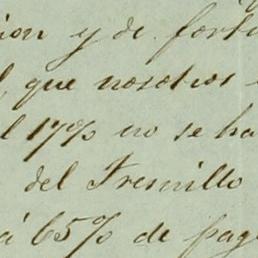 ion y de fort
que nosotros
l 17% no se ha
del Fresnillo
á 65% de pag